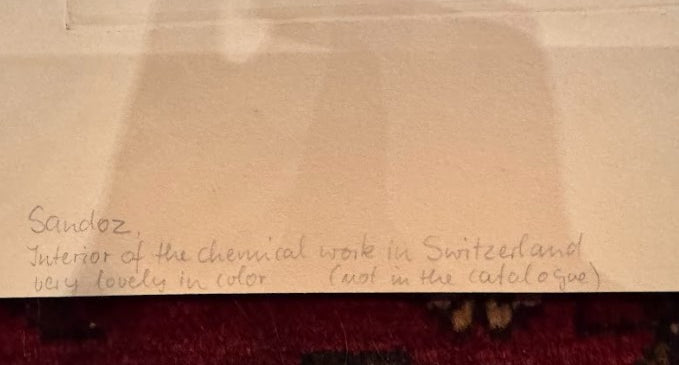 Sandoz,
Interior of the chemical work in Switzerland
very lovely in color (not in the catalogue)